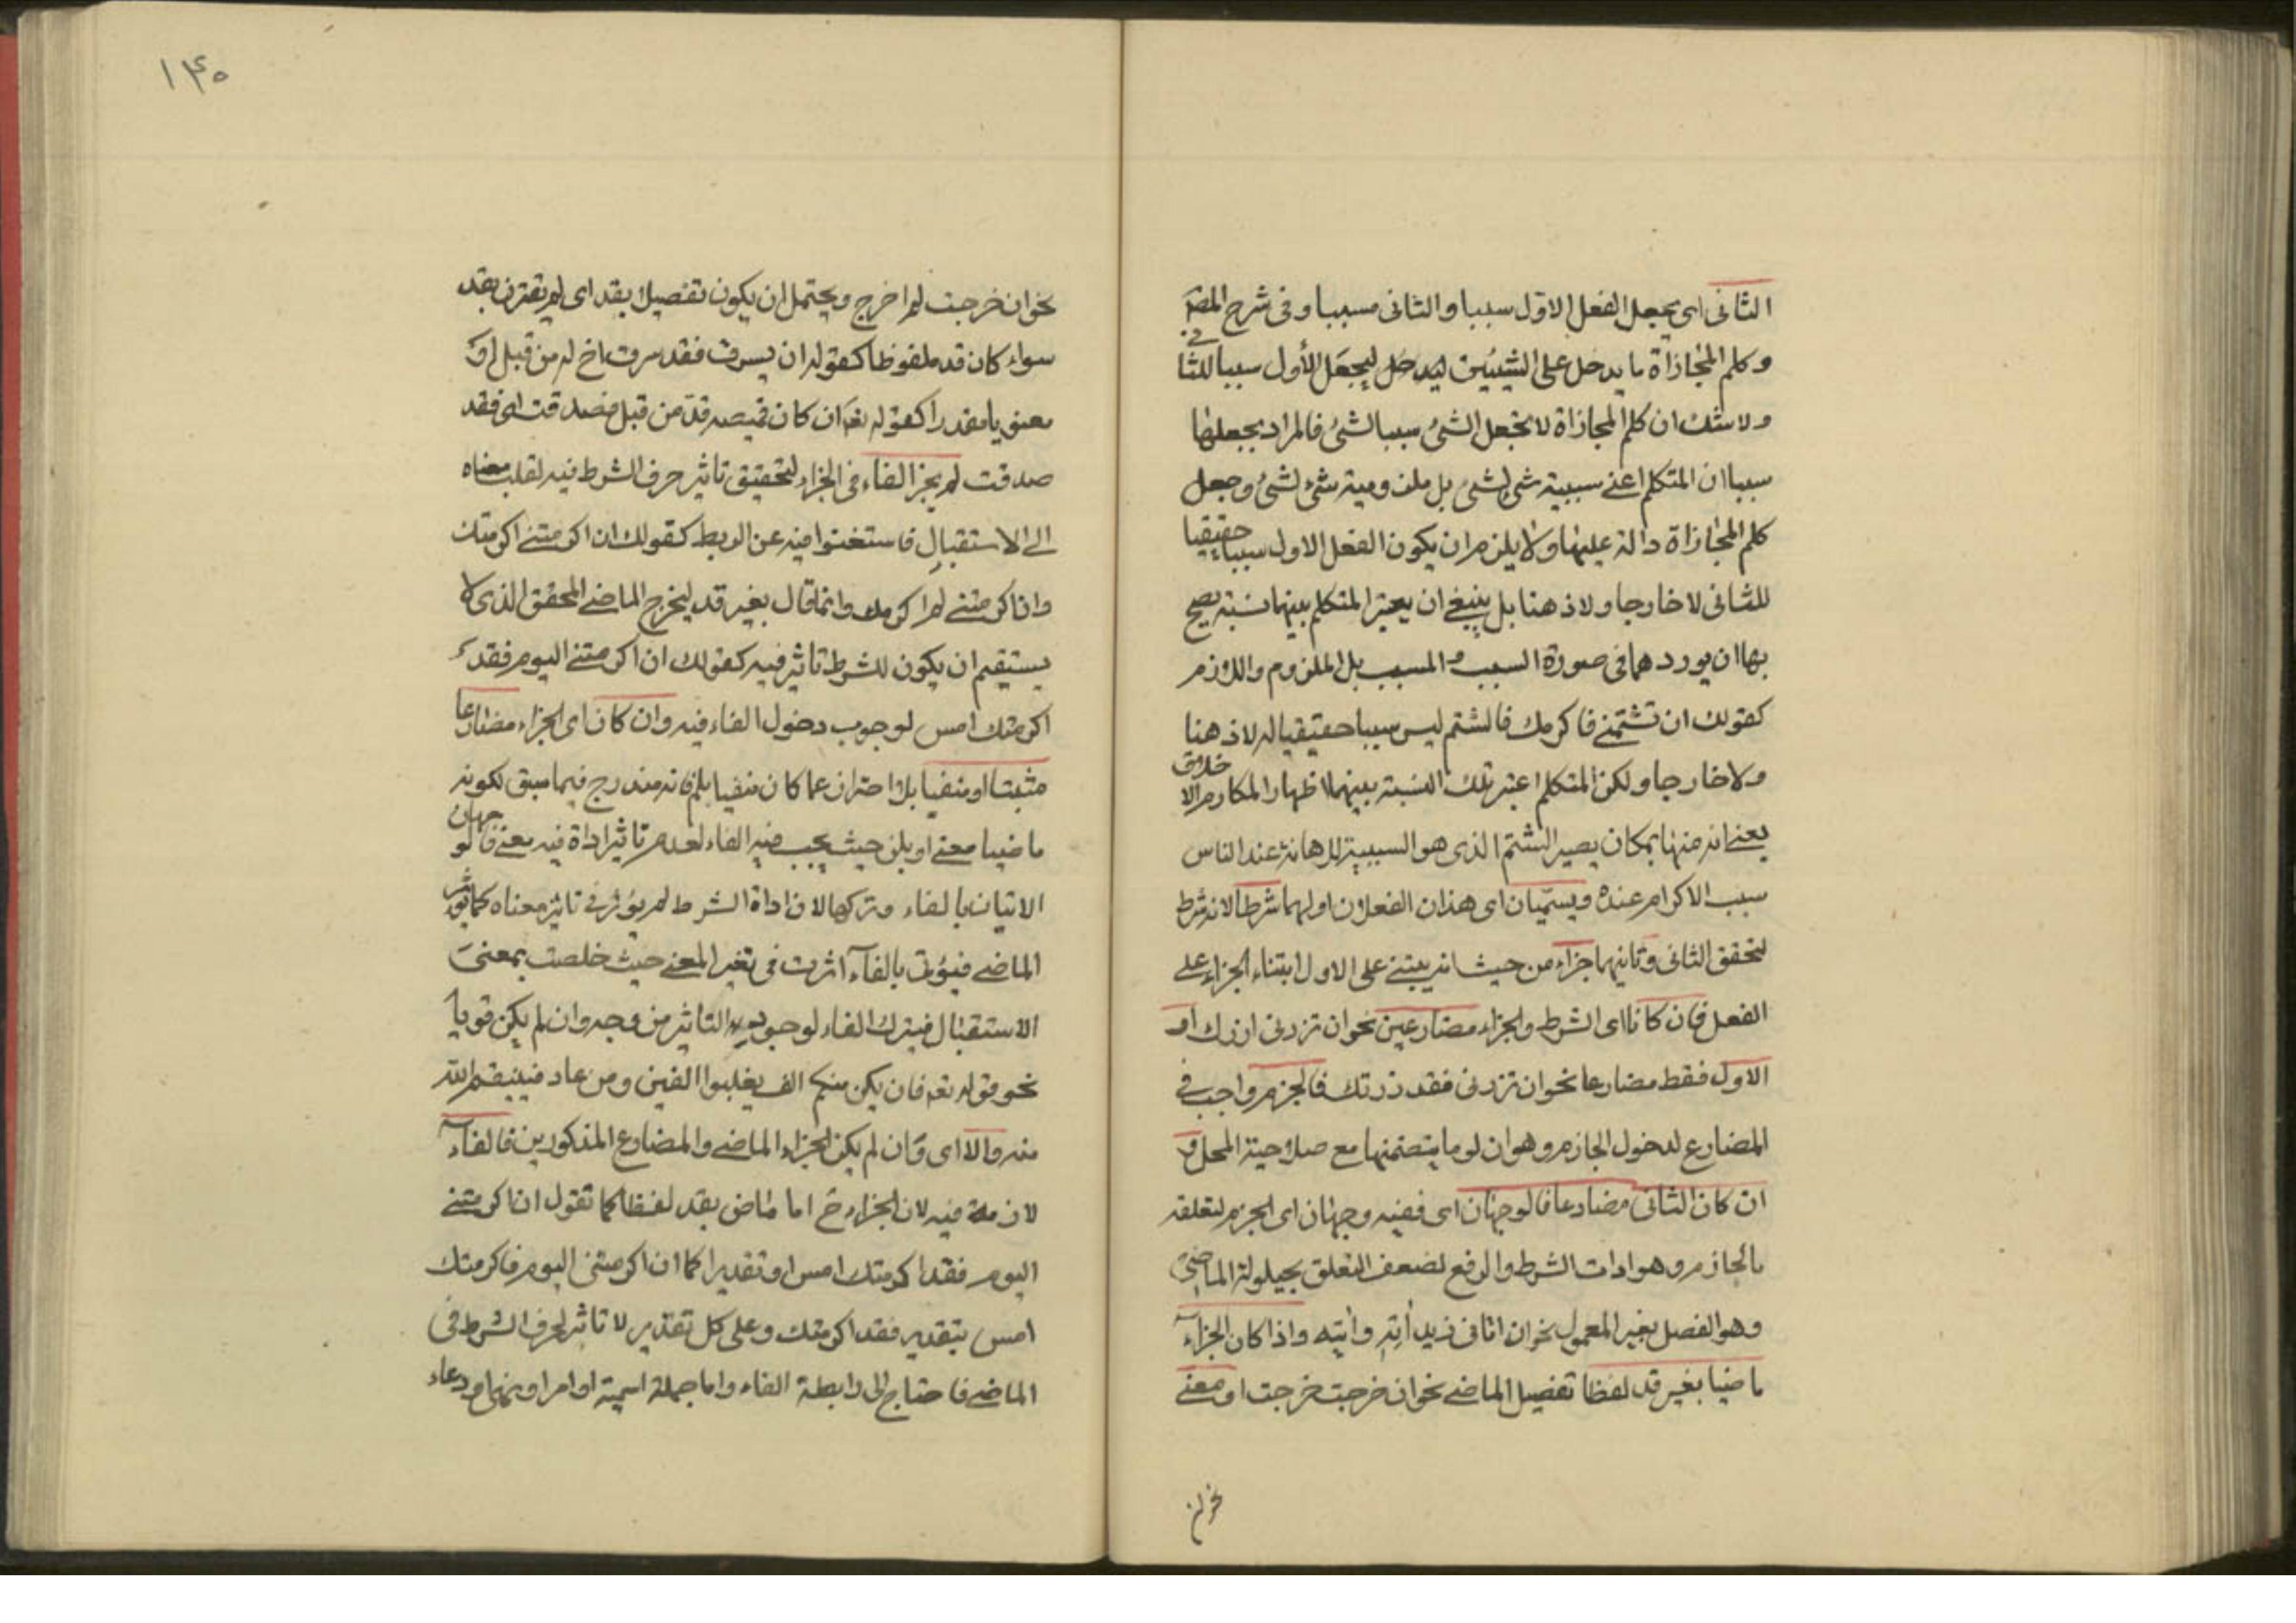 الثانى اى يجعل الفعل الاول سببا والثانى مسببا وفى شرح المصـ
وكلم المجازاة ما يدخل على الشيئين ليدخل ليجعل الأول سببا للثانى
ولا شك ان كلم المجازاة لا تجعل الشئ سببا لشئ فالمراد بجعلها
سببا ان المتكلم اعنى سببية شئ لشئ بل ملزومية شئ لشئ وجعل
كلم المجازاة دالة عليها ولا يلزم ان يكون الفعل الاول سببا حقيقيا
للثانى لا خارجا ولا ذهنا بل ينبغى ان يعتبر المتكلم بينهما نسبة يصح
بها ان يوردهما فى صورة السبب والمسبب بل الملزوم واللازم
كقولك ان تشتمنى فاكرمك فالشتم ليس سببا حقيقيا له لا ذهنا
ولا خارجا ولكن المتكلم اعتبر تلك النسبة بينهما لاظهار المكارم الاخلاق
يعنى انه منها بمكان يصير الشتم الذى هو السببية للاهانة عند الناس
سبب الاكرام عنده ويسمّيان اى هذان الفعلان اولهما شرطا لانه شرط
لتحقق الثانى وثانيهما جزاء من حيث انه يبتنى على الاول ابتناء الجزاء على
الفعل فان كانا اى الشرط والجزاء مضارعين نحو ان تزدنى ازرك او
الاول فقط مضارعا نحو ان تزدنى فقد زرتك فالجزم واجب فى
المضارع لدخول الجازم وهو ان لو ما يتضمنها مع صلاحية المحل و
ان كان الثانى مضارعا فالوجهان اى ففيه وجهان اى الجزم لتعلقه
بالجازم وهو ادات الشرط والرفع لضعف التعلق بحيلولة الماضى
وهو الفصل بغير المعمول نحو ان اتانى زيد أتِه وآتيه واذا كان الجزاء
ماضيا بغير قد لفظا تفصيل الماضى نحو ان خرجت خرجت او معنى
نحو ان
١٤٥
نحو ان خرجت لم اخرج ويحتمل ان يكون تفصيلا بقد اى لم يقترن بقد
سواء كان قد ملفوظا كقوله ان يسرق فقد سرق اخ له من قبل او
معنويا مقدرا كقوله تعـ ان كان قميصه قدّ من قبل فصدقت اى فقد
صدقت لم يجز الفاء فى الجزاء لتحقيق تاثير حرف الشرط فيه لقلب معناه
الى الاستقبال فاستغنوا فيه عن الربط كقولك ان اكرمتنى اكرمتك
وان اكرمتنى لم اكرمك وانما قال بغير قد ليخرج الماضى المحقق الذى لا
يستقيم ان يكون للشرط تاثير فيه كقولك ان اكرمتنى اليوم فقد
اكرمتك امس لوجوب دخول الفاء فيه وان كان اى الجزاء مضارعا
مثبتا او منفيا بلا احتراز عما كان منفيا بلم فانه مندرج فيما سبق لكونه
ماضيا معنى او بلن حيث يجب فيه الفاء لعدم تاثير اداة فيه معنى فالوجهان
الاتيان بالفاء وتركها لان اداة الشرط لم يؤثر فى تاثير معناه كما يؤثر
الماضى فيؤتى بالفاء اثرت فى تغير المعنى حيث خلصت بمعنى
الاستقبال فيترك الفاء لوجود التاثير من وجه وان لم يكن قويا
نحو قوله تعـ فان يكن منكم الف يغلبوا الفين ومن عاد فينتقم الله
منه والا اى وان لم يكن الجزاء الماضى والمضارع المذكورين فالفاء
لازمة فيه لان الجزاء ح اما ماض بقد لفظا كما تقول ان اكرمتنى
اليوم فقد اكرمتك امس او تقديرا كما ان اكرمتنى اليوم فاكرمتك
امس بتقدير فقد اكرمتك وعلى كل تقدير لا تاثير لحرف الشرط فى
الماضى فاحتاج الى رابطة الفاء واما جملة اسمية او امر او نهى او دعاء